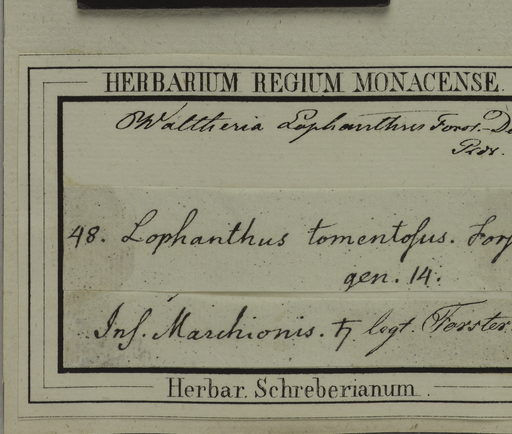 HERBARIUM REGIUM MONACENSE.
Waltheria Lophanthus Forst.
48. Lophanthus tomentosus. Fors
gen. 14.
Ins. Marchionis. ♄ legt. Forster.
Herbar. Schreberianum.